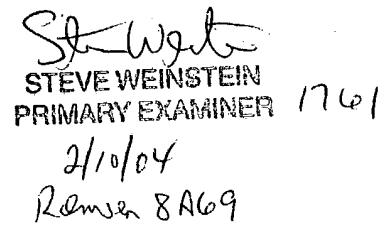 Steve Weinstein
STEVE WEINSTEIN
PRIMARY EXAMINER 1761
2/10/04
8A69